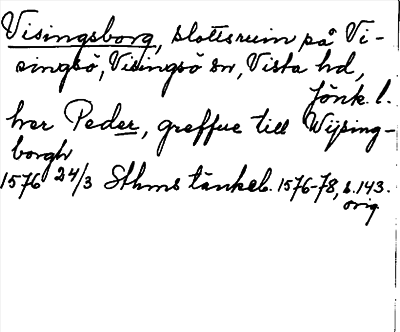 Visingsborg, slottsruin på Vi-
singsö, Visingsö sn, Vista hd,
Jönk. l.
her Peder, greffue till Wijsing-
borgh
1576 24/3 Sthms tänkeb. 1576-78, s. 143.
orig